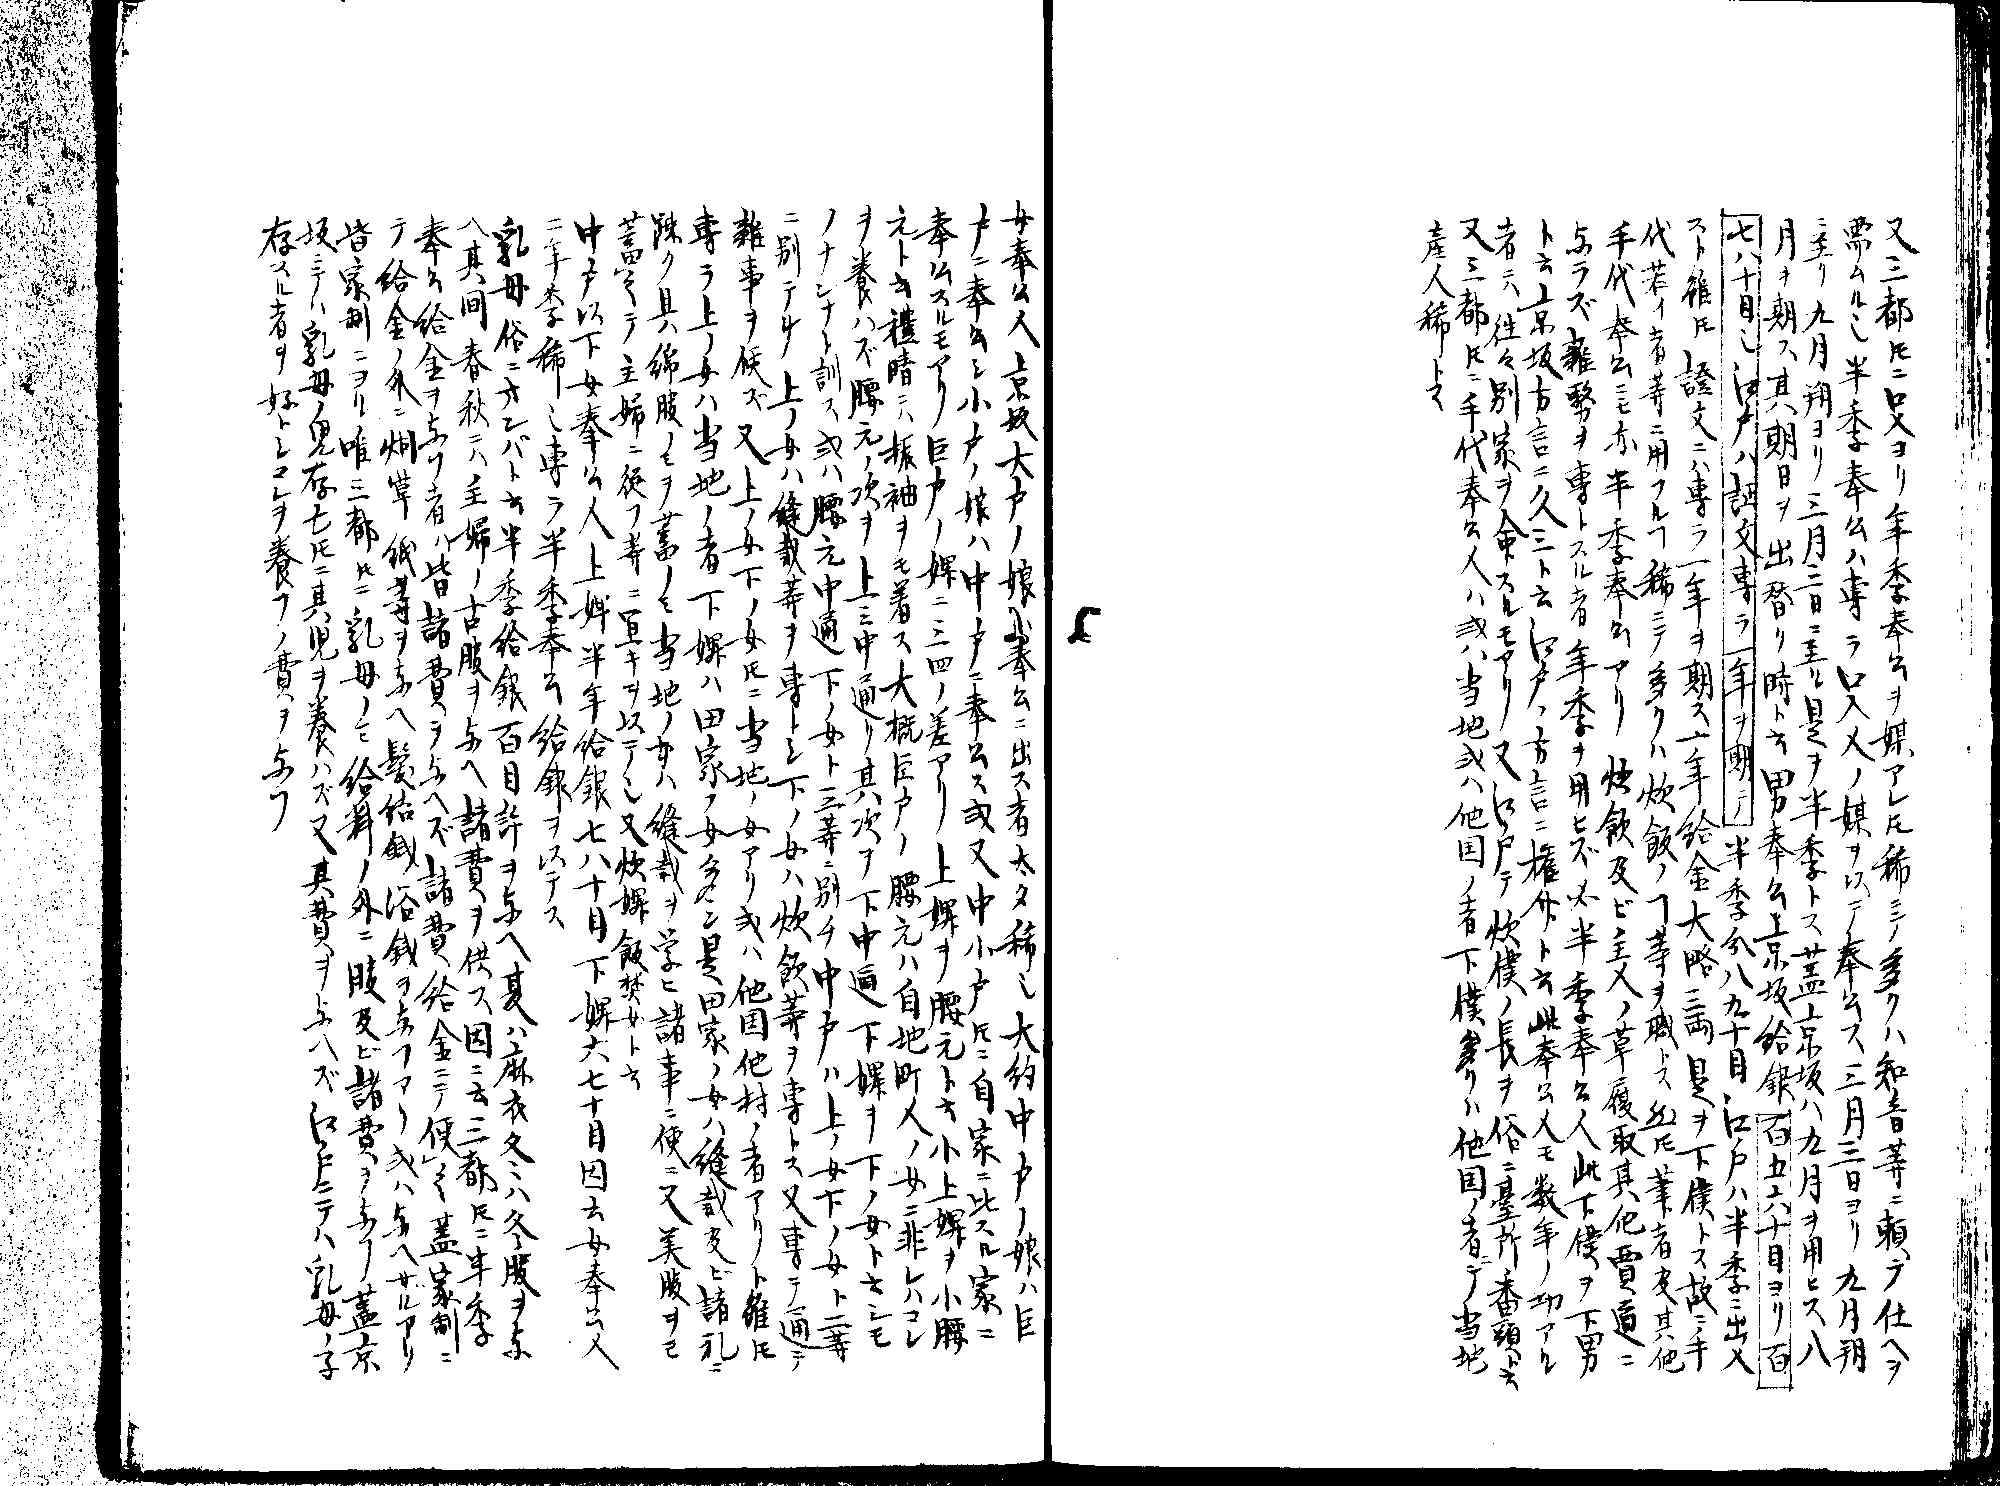 又三都トモニ口入ヨリ年季奉公ヲ媒アレトモ稀ニノ多クハ知音等ニ頼テ仕ヘヲ
需ムル也半季奉公ハ専ラ口入人ノ媒ヲ以テ奉公ス三月三日ヨリ九月朔
ニ至リ九月朔ヨリ三月二日ニ至ル是ヲ半季トス蓋京坂ハ九月ヲ用ヒス八
月ヲ期ス其期日ヲ出替リ時ト云男奉公上京坂給銀百五六十目ヨリ百
七八十目也江戸ハ証文専ラ一年ヲ期テ半季分八九十目江戸ハ半季ニ出入
スト雖トモ證文ニハ専ラ一年ヲ期ス一年給金大略三両是ヲ下僕トス故ニ手
代若イ者等ニ用フルコト稀ニテ多クハ炊飯ノコト等ヲ職トス然トモ筆者及其他
手代奉公ニモ亦半季奉公アリ炊飯及ビ主人ノ草履取其他賈道ニ
与ラズ雑務ヲ専トスル者年季ヲ用ヒズ必半季奉公人此下僕ヲ下男
ト云京坂方言ニ久三ト云江戸方言ニ権介ト云此奉公人モ数年ノ功アル
者ニハ往々別家ヲ命スルモアリ又江戸テ炊僕ノ長ヲ俗ニ臺所番頭ト云
又三都トモニ手代奉公人ハ或ハ当地或ハ他国ノ者下僕多クハ他国ノ者ニテ当地
産人稀トス
女奉公人京坂大戸ノ娘ハ奉公ニ出ス者太タ稀也大約中戸ノ娘ハ巨
戸ニ奉公シ小戸ノ娘ハ中戸ニ奉公ス或又中小戸トモニ自家ニ比スル家ニ
奉公スルモアリ巨戸ノ婢ニ三四ノ差アリ上婢ヲ腰元ト云小上婢ヲ小腰
元ト云禮晴ニハ振袖ヲモ着ス大概巨戸ノ腰元ハ自地町人ノ女ニ非レハコレ
ヲ養ハズ腰元ノ次ヲ上ミ中通リ其次ヲ下中通下婢ヲ下ノ女ト云シモ
ノナンナト訓ス或ハ腰元中通下ノ女ト三等ニ別チ中戸ハ上ノ女下ノ女ト二等
ニ別テリ上ノ女ハ縫裁等ヲ専トシ下ノ女ハ炊飲等ヲ専トス又専テ通テ
雑事ヲ候ズ又上ノ女下ノ女トモニ当地ノ女アリ或ハ他国他村ノ者アリト雖トモ
専ラ上ノ女ハ当地ノ者下婢ハ田家ノ女多シ是田家ノ女ハ縫裁及ビ諸礼ニ
疎ク且ハ綿服ノミヲ蓄ノミ当地ノ女ハ縫裁ヲ学ヒ諸事ニ便ニ又美服ヲモ
蓄ヘテ主婦ニ従フ等ニ宜キヲ以テ也又炊婢飯焚女ト云
中戸以下女奉公人上婢半年給銀七八十目下婢六七十目因云女奉公人
ニ年季稀也専ラ半季奉公給銀ヲ以テス
乳母俗ニオンバト云半季給銀百目許ヲ与ヘ夏ハ麻衣冬ニハ冬服ヲ与
ヘ其間春秋ニハ主婦ノ古服ヲ与ヘ諸費ヲ供ス因ニ云三都トモニ半季
奉公給金ヲ与フ者ハ皆諸費ヲ与ヘズ諸費給金ニテ便之蓋家制ニ
テ給金ノ外ニ烟草紙等ヲ与ヘ髪結銭浴銭ヲ与フアリ或ハ与ヘザルアリ
皆家制ニヨル唯三都トモニ乳母ノミ給料ノ外ニ服及ビ諸費ヲ与フ蓋京
坂ニテハ乳母ノ児存七トモニ其児ヲ養ハズ又其費ヲ与ヘズ江戸ニテハ乳母ノ子
存スル者ヲ好トシコレヲ養フノ費ヲ与フ